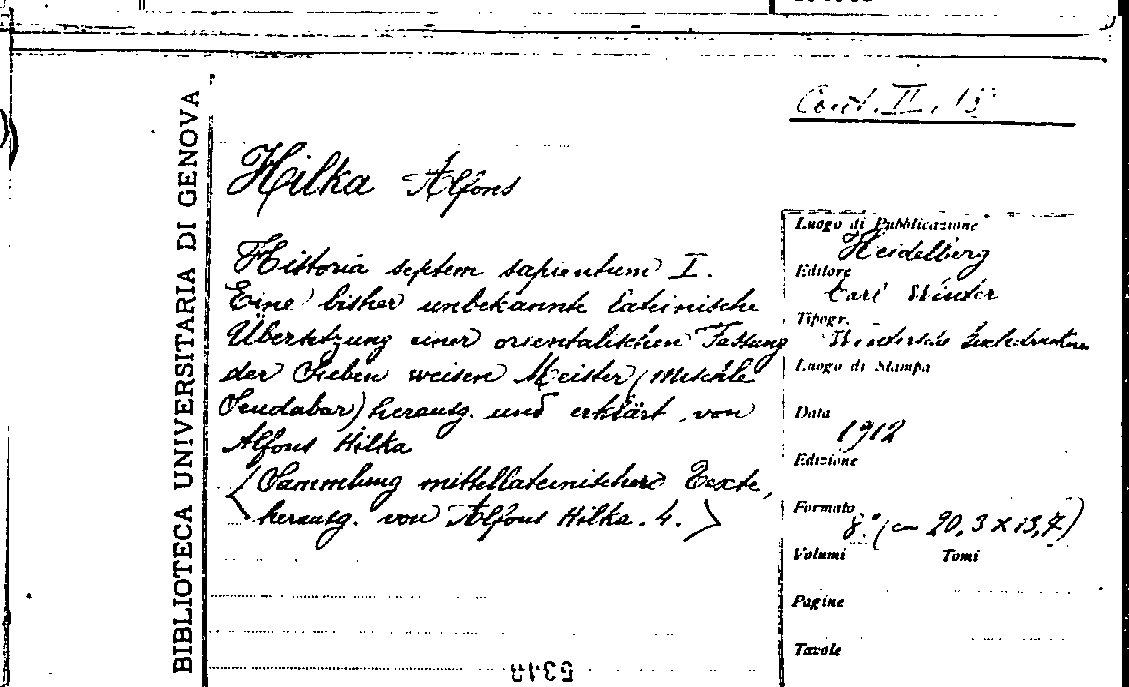 BIBLIOTECA UNIVERSITARIA DI GENOVA
Cont. II, 15
Hilka Alfons
Historia septem sapientum I.
Eine bisher unbekannte lateinische
Übersetzung einer orientalischen Fassung
der Sieben weisen Meister (Mischle
Sendabar) herausg. und erklärt von
Alfons Hilka
<Sammlung mittellateinischer Texte,
herausg. von Alfons Hilka. 4.>
Luogo di Pubblicazione
Heidelberg
Editore
Carl Winter
Tipogr.
Luogo di Stampa
Data
1912
Edizione
Formato
8° (cm 20,3 x 13,7)
Volumi Tomi
Pagine
Tavole